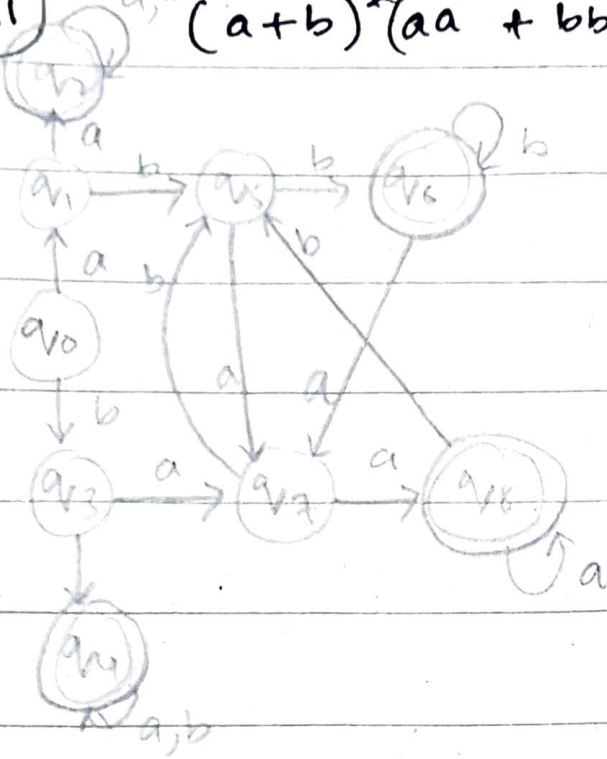 (a+b)*(aa + bb
a
q1 b q5 b q6 b
a
b b
q0
b a a
q3 a q7 a q8
a
q4
a,b